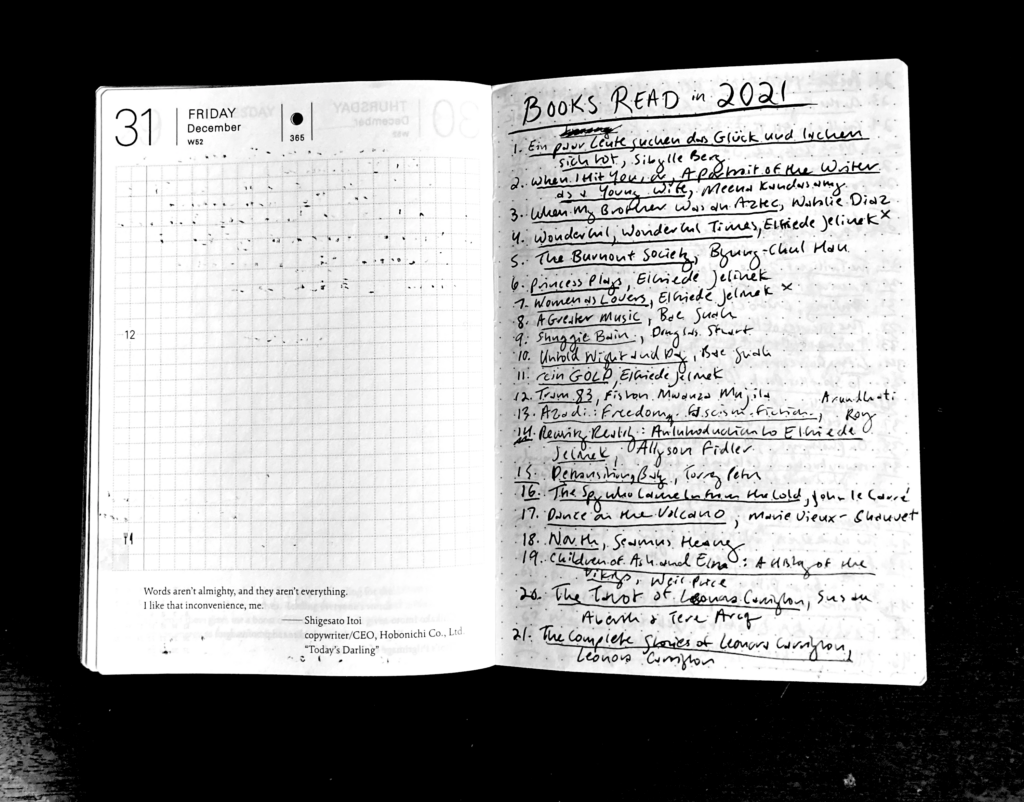 31
FRIDAY
December
W52
365
12
Words aren't almighty, and they aren't everything.
I like that inconvenience, me.
Shigesato Itoi
copywriter/CEO, Hobonichi Co., Ltd
"Today's Darling"
BOOKS READ in 2021
1. Ein paar Leute suchen das Glück und lachen
sich tot, Sibylle Berg
2. When I Hit You, or, A Portrait of the Writer
as a Young Wife, Meena Kandasamy
3. When My Brother Was an Aztec, Natalie Diaz
4. Wonderful, Wonderful Times, Elfriede Jelinek x
5. The Burnout Society, Byung-Chul Han
6. Princess Plays, Elfriede Jelinek
7. Women as Lovers, Elfriede Jelinek x
8. A Greater Music, Bae Suah
9. Shuggie Bain, Douglas Stuart
10. Untold Night and Day, Bae Suah
11. rein GOLD, Elfriede Jelinek
12. Tram 83, Fiston Mwanza Mujila
13. Azadi: Freedom. Fascism. Fiction, Arundhati Roy
14. Rewriting Reality: An Introduction to Elfriede
Jelinek, Allyson Fidler
15. Detransition, Baby, Torrey Peters
16. The Spy Who Came In from the Cold, John le Carré
17. Dance on the Volcano, Marie Vieux-Chauvet
18. North, Seamus Heaney
19. Children of Ash and Elm: A History of the
Vikings, Neil Price
20. The Tarot of Leonora Carrington, Susan
Aberth & Tere Arcq
21. The Complete Stories of Leonora Carrington,
Leonora Carrington